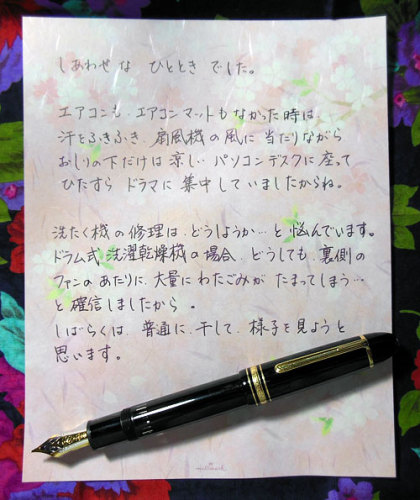 しあわせな ひととき でした。
エアコンも、エアコンマットもなかった時は、
汗をふきふき、扇風機の風に当たりながら
おしりの下だけは涼しいパソコンデスクに座って
ひたすら ドラマに集中していましたからね。
洗たく機の修理は、どうしようか…と悩んでいます。
ドラム式洗濯乾燥機の場合、どうしても、裏側の
ファンのあたりに、大量にわたごみが たまってしまう…
と確信しましたから。
しばらくは、普通に、干して、様子を見ようと
思います。
Hallmark